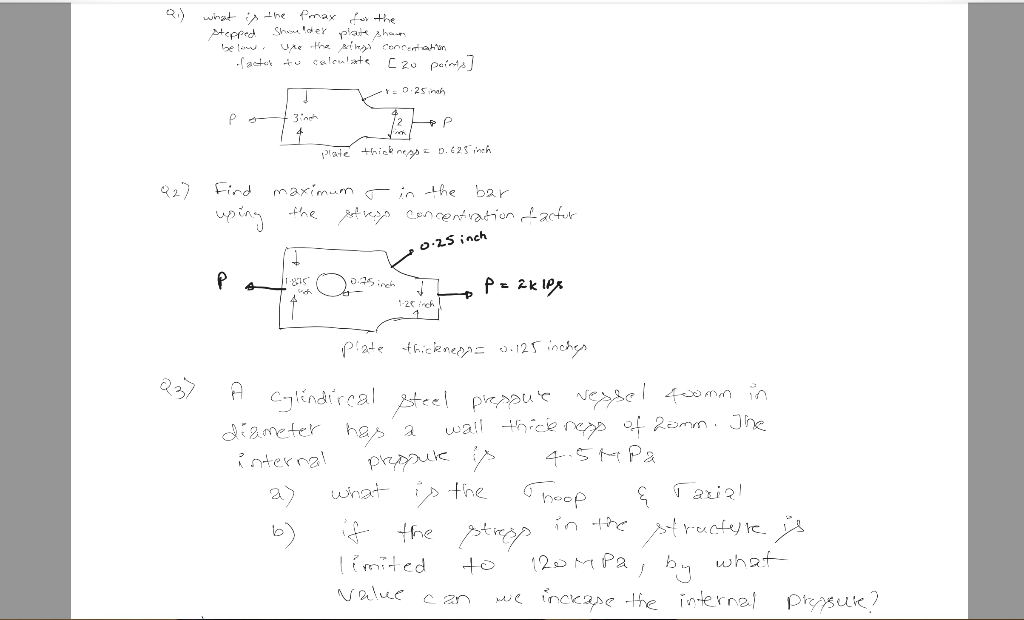 Q1) what is the Pmax for the
stepped Shoulder plate shown
below. Use the stress concentration
factor to calculate [20 points]
r = 0.25 inch
P 3 inch 2 inch P
plate thickness = 0.625 inch
Q2) Find maximum σ in the bar
using the stress concentration factor
0.25 inch
P 1.875 inch 0.75 inch 1.25 inch P = 2 kips
plate thickness = 0.125 inches
Q3) A cylindircal steel pressure vessel 400mm in
diameter has a wall thickness of 20mm. The
internal pressure is 4.5 MPa
a) what is the σhoop & σaxial
b) if the stress in the structure is
limited to 120 MPa, by what
value can we increase the internal pressure?